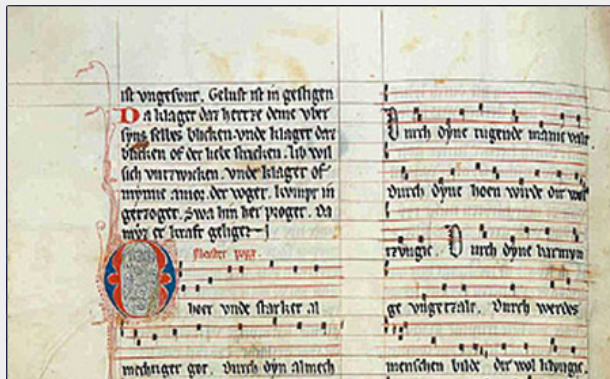 ist vngesvnt. Gelust ist in gestigen
Da klaget daz hertze deme vber
syns selbes blicken. vnde klaget daz
blicken of der liebe stricken. wil
sich vnde klaget of
mynne amor. der voget. kvmpt in
getzoget. Swa hin her proget. Da
mvz er kraft geliget
Meister poppe.
heer vnde starker al
mechtiger got. Durch dyn almech
Durch dyne tugende manic valt
Durch dyne hoen wirde dir
Durch dyne barmvn
ge vngetzalt. Durch werdes
menschen bilde. dir wol